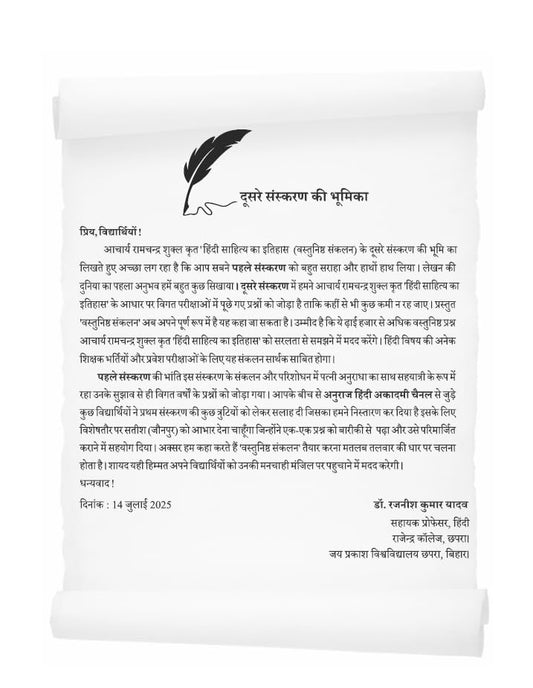 दूसरे संस्करण की भूमिका
प्रिय, विद्यार्थियों !
आचार्य रामचन्द्र शुक्ल कृत 'हिंदी साहित्य का इतिहास (वस्तुनिष्ठ संकलन) के दूसरे संस्करण की भूमि का
लिखते हुए अच्छा लग रहा है कि आप सबने पहले संस्करण को बहुत सराहा और हाथों हाथ लिया। लेखन की
दुनिया का पहला अनुभव हमें बहुत कुछ सिखाया। दूसरे संस्करण में हमने आचार्य रामचन्द्र शुक्ल कृत 'हिंदी साहित्य का
इतिहास' के आधार पर विगत परीक्षाओं में पूछे गए प्रश्नों को जोड़ा है ताकि कहीं से भी कुछ कमी न रह जाए। प्रस्तुत
'वस्तुनिष्ठ संकलन' अब अपने पूर्ण रूप में है यह कहा जा सकता है। उम्मीद है कि ये ढ़ाई हजार से अधिक वस्तुनिष्ठ प्रश्न
आचार्य रामचन्द्र शुक्ल कृत 'हिंदी साहित्य का इतिहास' को सरलता से समझने में मदद करेंगे। हिंदी विषय की अनेक
शिक्षक भर्तियों और प्रवेश परीक्षाओं के लिए यह संकलन सार्थक साबित होगा।
पहले संस्करण की भांति इस संस्करण के संकलन और परिशोधन में पत्नी अनुराधा का साथ सहयात्री के रूप में
रहा उनके सुझाव से ही विगत वर्षों के प्रश्नों को जोड़ा गया। आपके बीच से अनुराज हिंदी अकादमी चैनल से जुड़े
कुछ विद्यार्थियों ने प्रथम संस्करण की कुछ त्रुटियों को लेकर सलाह दी जिसका हमने निस्तारण कर दिया है इसके लिए
विशेषतौर पर सतीश (जौनपुर) को आभार देना चाहूँगा जिन्होंने एक-एक प्रश्न को बारीकी से पढ़ा और उसे परिमार्जित
कराने में सहयोग दिया। अक्सर हम कहा करते हैं 'वस्तुनिष्ठ संकलन' तैयार करना मतलब तलवार की धार पर चलना
होता है। शायद यही हिम्मत अपने विद्यार्थियों को उनकी मनचाही मंजिल पर पहुचाने में मदद करेगी।
धन्यवाद !
दिनांक : 14 जुलाई 2025
डॉ. रजनीश कुमार यादव
सहायक प्रोफेसर, हिंदी
राजेन्द्र कॉलेज, छपरा।
जय प्रकाश विश्वविद्यालय छपरा, बिहार।